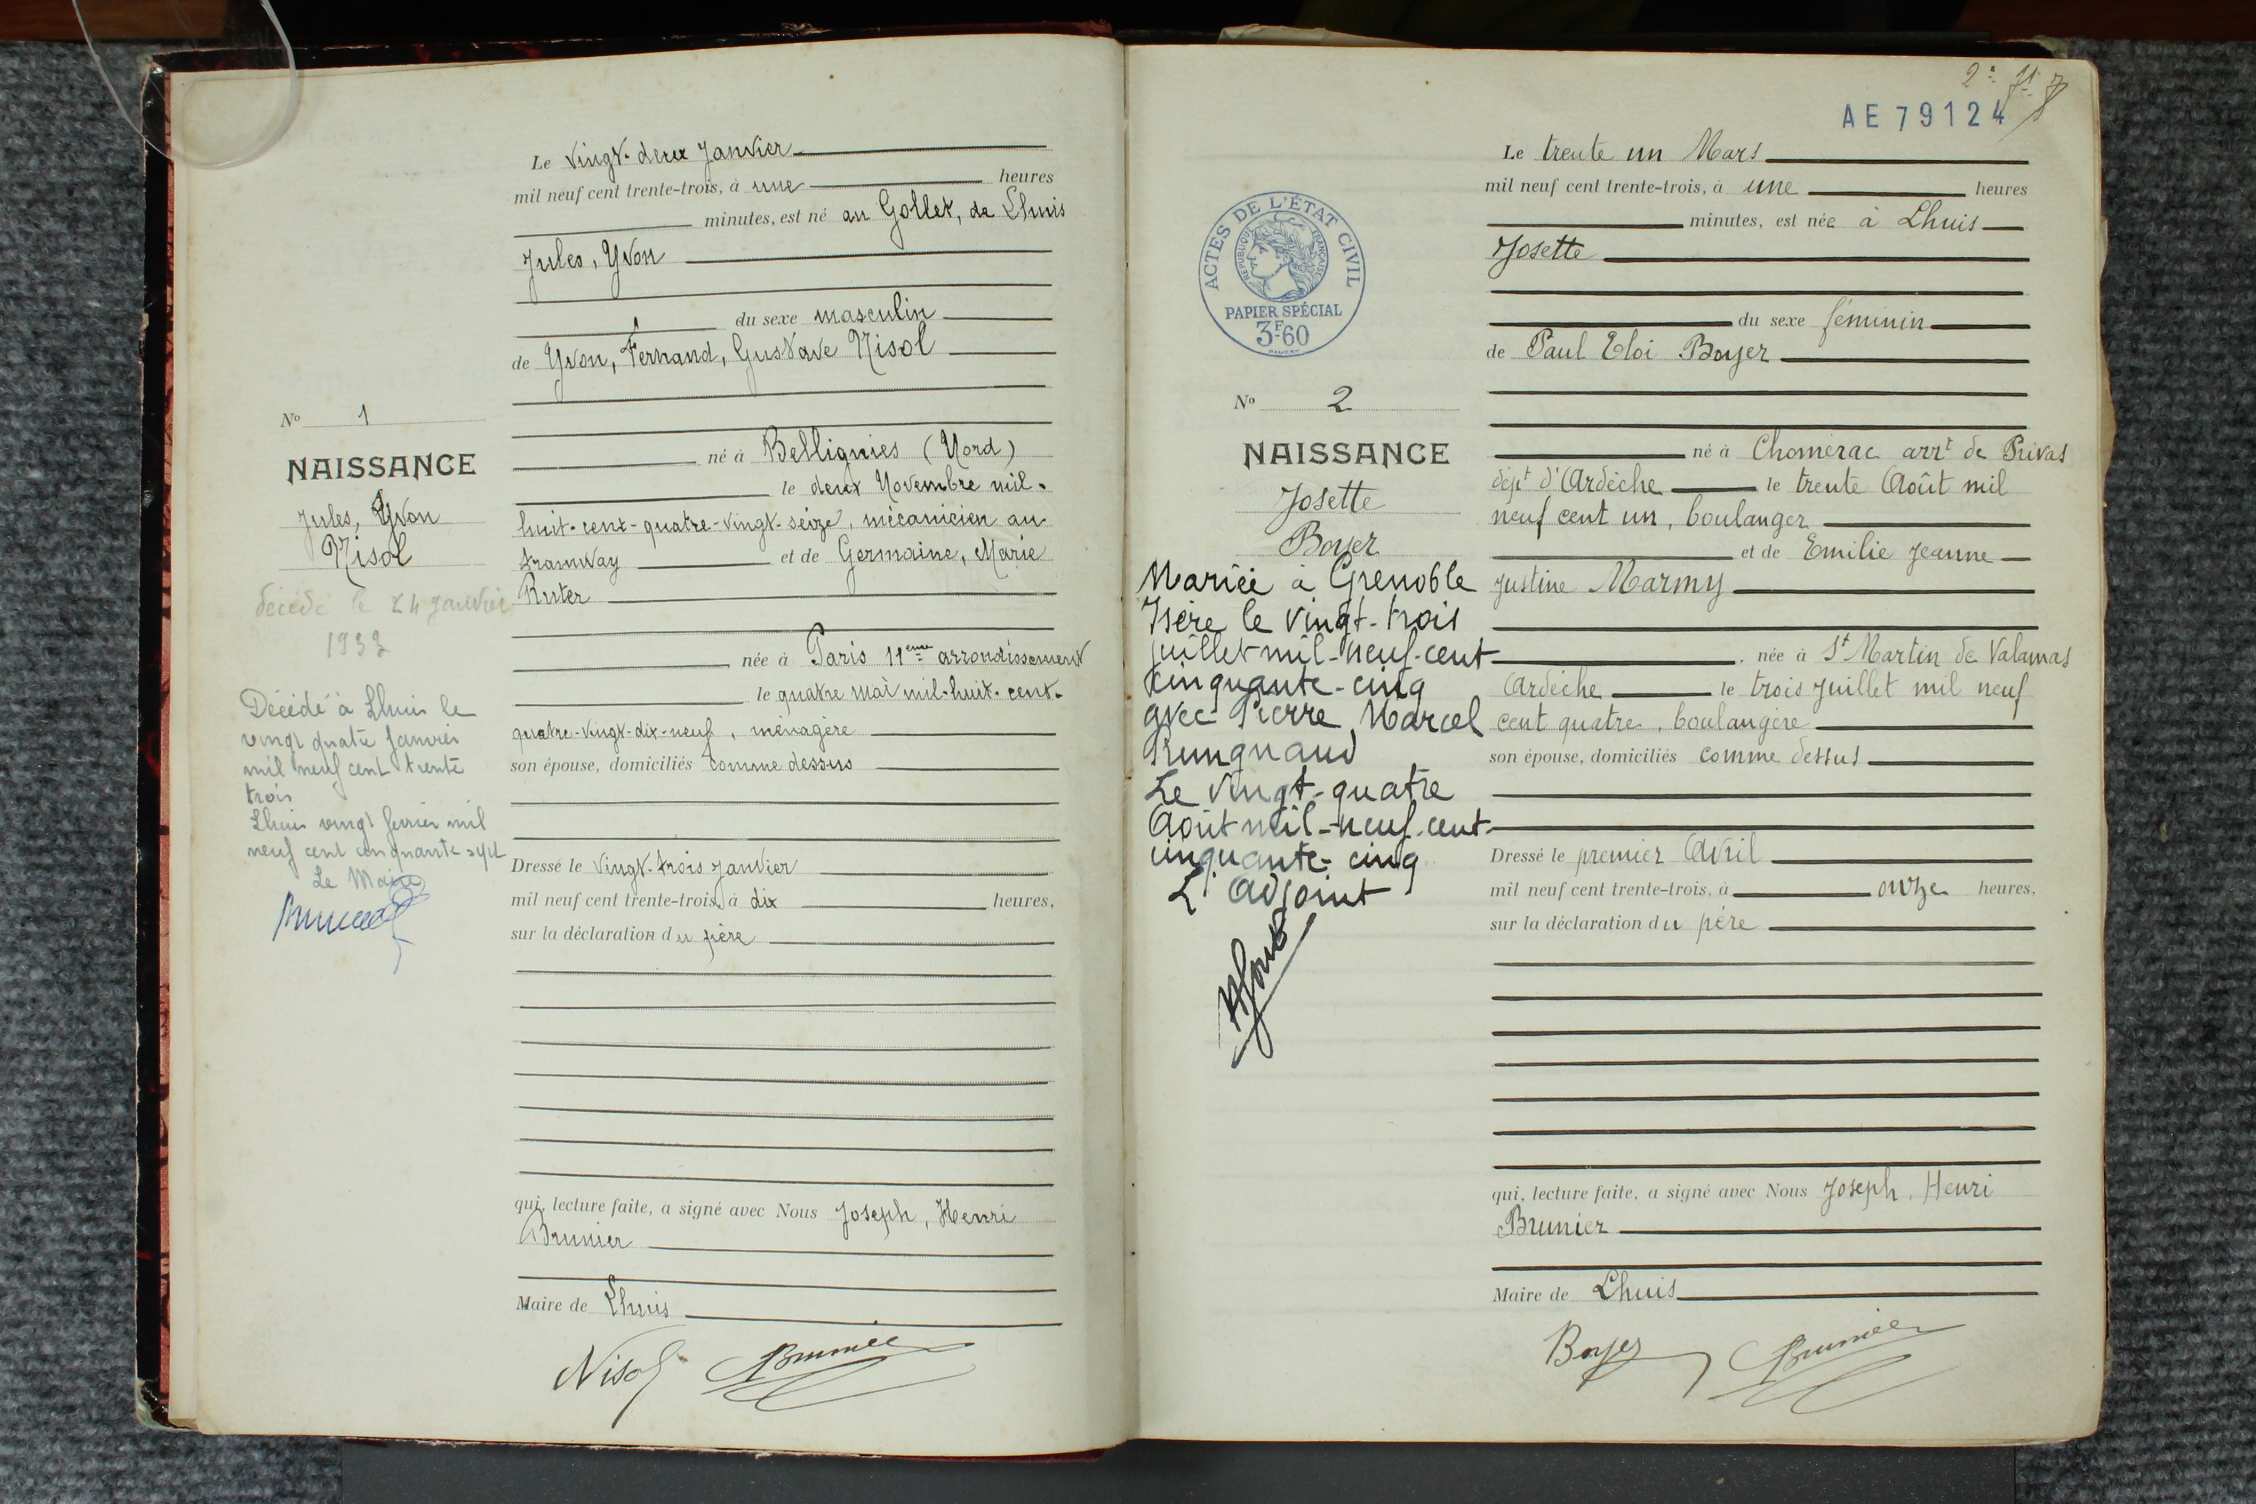 Le vingt-deux Janvier
mil neuf cent trente-trois, à une heures
minutes, est né au Gollet, de Lhuis
Jules, Yvon
du sexe masculin
de Yvon, Fernand, Gustave Nisol
né à Bellignies (Nord)
le deux Novembre mil-
huit-cent-quatre-vingt-seize, mécanicien au
tramway et de Germaine, Marie
Ruter
née à Paris 11eme arrondissement
le quatre mai mil-huit-cent-
quatre-vingt-dix-neuf, ménagère
son épouse, domiciliés comme dessus
Dressé le vingt-trois Janvier
mil neuf cent trente-trois, à dix heures,
sur la déclaration du père
qui, lecture faite, a signé avec Nous Joseph, Henri
Brunier
Maire de Lhuis
Nisol Brunier
No 1
NAISSANCE
Jules, Yvon
Nisol
décédé le 24 Janvier
1933
Décédé à Lhuis le
vingt quatre Janvier
mil neuf cent trente
trois
Lhuis vingt février mil
neuf cent cinquante sept
Le Maire
2e
AE 79124
ACTES DE L'ÉTAT CIVIL
RÉPUBLIQUE FRANÇAISE
PAPIER SPÉCIAL
3F60
No 2
NAISSANCE
Josette
Boyer
Mariée à Grenoble
Isère le vingt-trois
juillet mil-neuf-cent
cinquante-cinq
avec Pierre, Marcel
Le vingt-quatre
Août mil-neuf-cent-
cinquante-cinq
L'adjoint
Le trente un Mars
mil neuf cent trente-trois, à une heures
minutes, est née à Lhuis
Josette
du sexe féminin
de Paul Eloi Boyer
né à Chomérac arrt de Privas
dépt d'Ardèche le trente Août mil
neuf cent un, boulanger
et de Emilie Jeanne
Justine Marmy
née à St Martin de Valamas
Ardèche le trois Juillet mil neuf
cent quatre, boulangère
son épouse, domiciliés comme dessus
Dressé le premier Avril
mil neuf cent trente-trois, à onze heures,
sur la déclaration du père
qui, lecture faite, a signé avec Nous Joseph, Henri
Brunier
Maire de Lhuis
Boyer Brunier